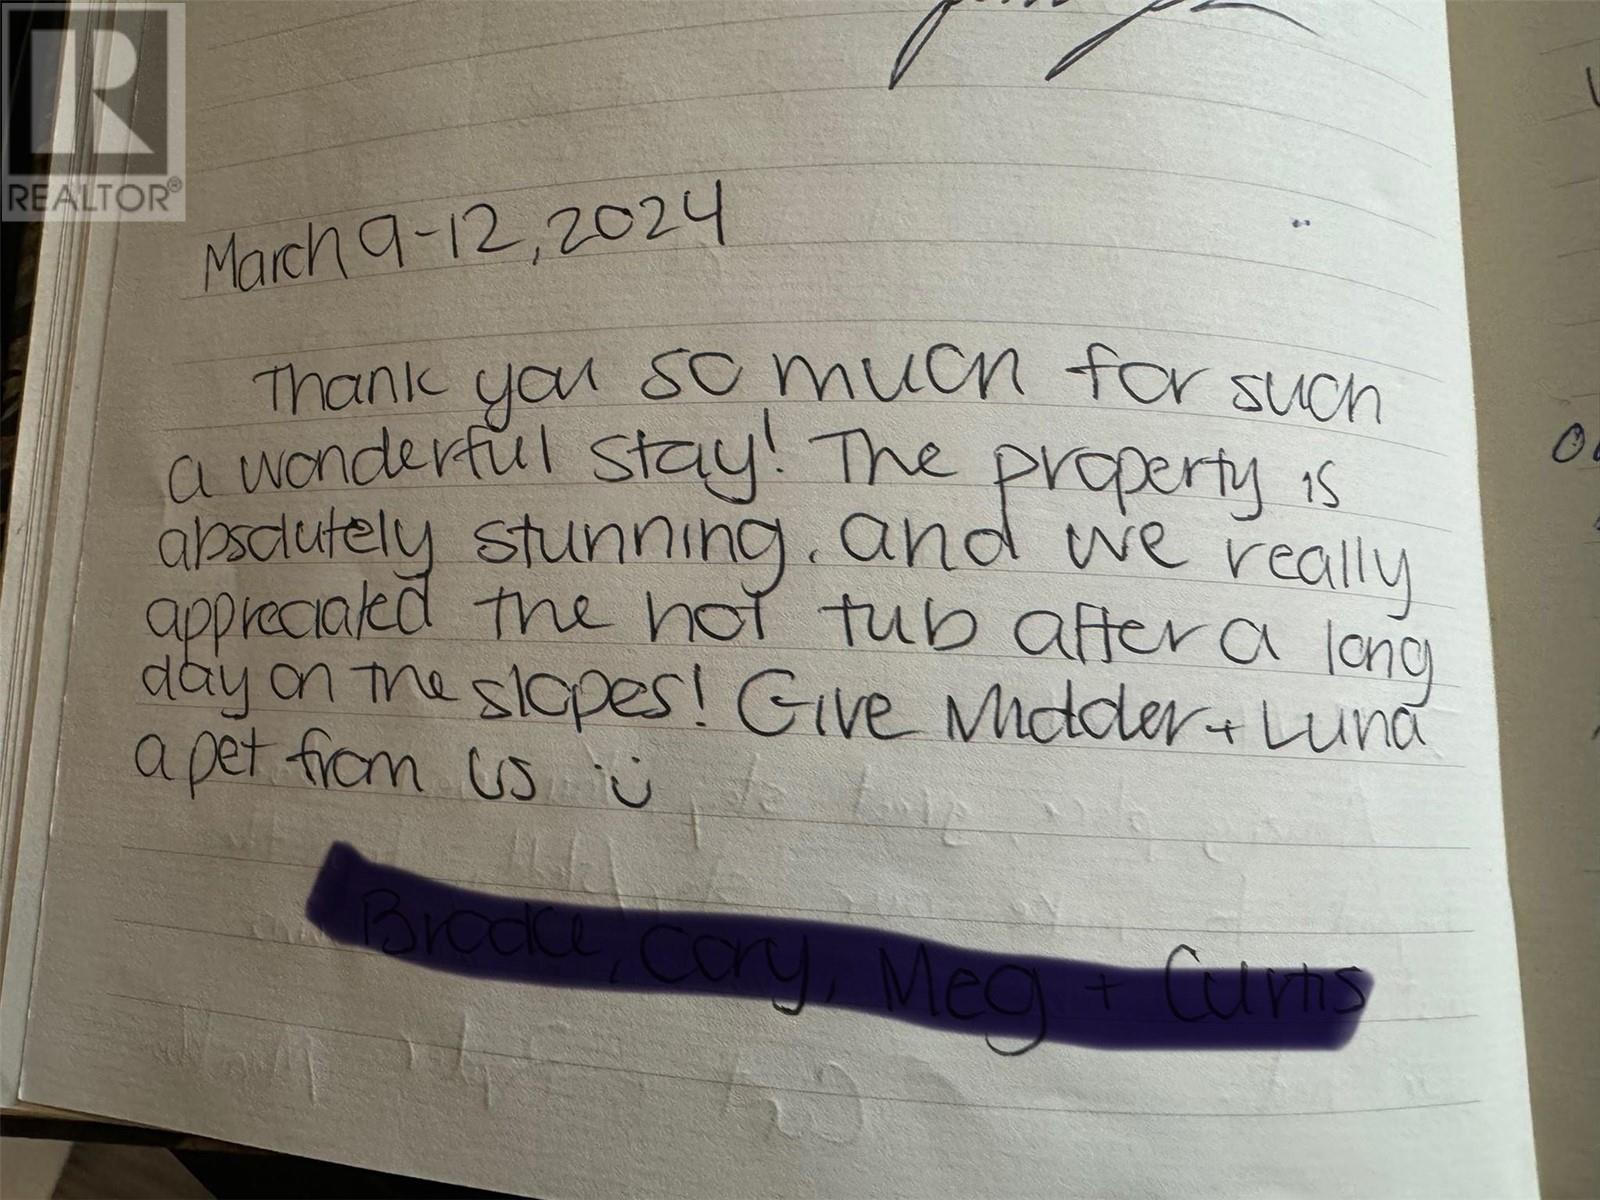 REALTOR®
March 9-12, 2024
Thank you so much for such
a wonderful stay! The property is
absolutely stunning. and we really
appreciated the hot tub after a long
day on the slopes! Give + Luna
a pet from us :)
Brooke, Cory, Meg + Curtis